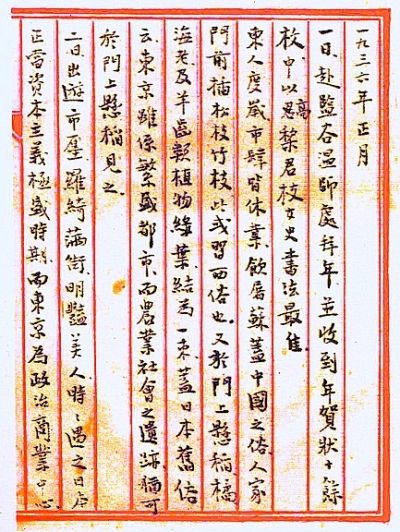 一九三六年正月
一日赴鹽谷溫師處拜年並收到年賀狀十餘
枚、中以高黎君枝女史書法最佳
東人度歲市肆皆休業飲屠蘇蓋中國之俗人家
門前插松枝竹枝此或習西俗也又於門上懸稻橘
海老及羊齒類植物綠葉結為一束蓋日本舊俗
云東京雖係繁盛都市而農業社會之遺跡猶可
於門上懸稻見之
二日出遊市廛羅綺滿街明豔美人時〻遇之日本
正當資本主義極盛時期而東京為政治商業中心